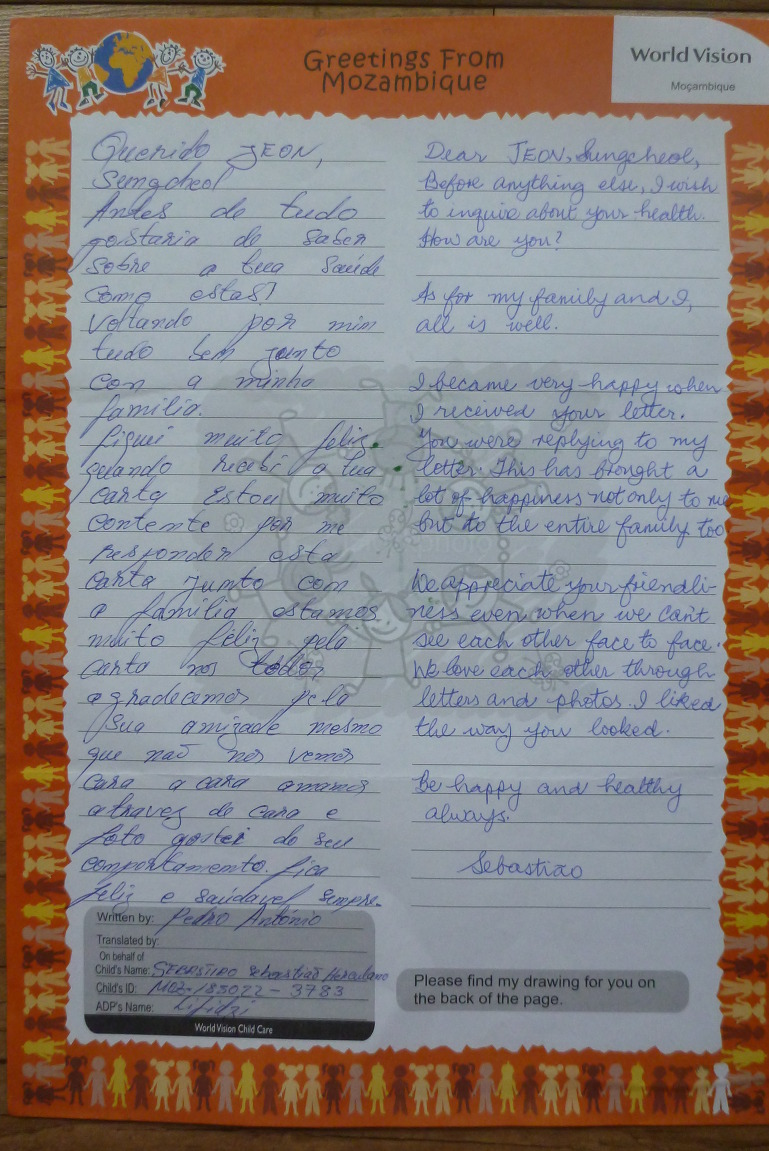 Greetings From
Mozambique
World Vision
Moçambique
Querido JEON,
Sungcheol
Antes de tudo
gostaria de saber
sobre a tua saúde
como estas?
Voltando por mim
tudo bem junto
con a minha
familia.
fiquei muito feliz
quando recebi a tua
carta Estou muito
contente por me
responder esta
carta junto com
a familia estamos
muito feliz pela
carta nos todos
agradecemos pela
sua amizade mesmo
que naõ nos vemos
cara a cara amamos
atravez de cara e
foto gostei do seu
comportamento. fica
feliz e saúdavel sempre.
Dear JEON, Sungcheol,
Before anything else, I wish
to inquire about your health.
How are you?
As for my family and I,
all is well.
I became very happy when
I received your letter.
You were replying to my
letter. This has brought a
lot of happiness not only to me
but to the entire family too
We appreciate your friendli-
ness even when we can't
see each other face to face.
We love each other through
letters and photos. I liked
the way you looked.
Be happy and healthy
always.
Sebastião
Written by: Pedro António
Translated by:
On behalf of
Child's Name: Sebastião Herculano
Child's ID: MOZ-183022-3783
ADP's Name:
World Vision Child Care
Please find my drawing for you on
the back of the page.